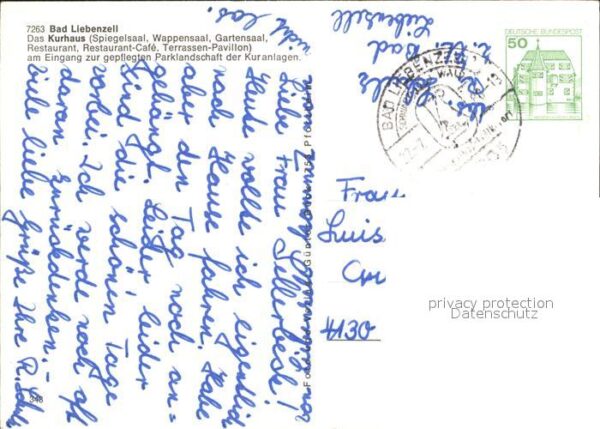 7263 Bad Liebenzell
Das Kurhaus (Spiegelsaal, Wappensaal, Gartensaal,
Restaurant, Restaurant-Café, Terrassen-Pavillon)
am Eingang zur gepflegten Parklandschaft der Kuranlagen.
Liebe Frau
Heute wollte ich eigentlich
nach Hause fahren. Habe
aber den Tag noch an=
gehängt. Leider leider
sind die schönen Tage
vorbei. Ich werde noch oft
daran zurückdenken.-
viele liebe Grüße Ihre R.
nicht los.
z. Zt. Bad
Liebenzell
DEUTSCHE BUNDESPOST
50
BAD LIEBENZELL
Frau
Luis
4130
privacy protection
Datenschutz
348